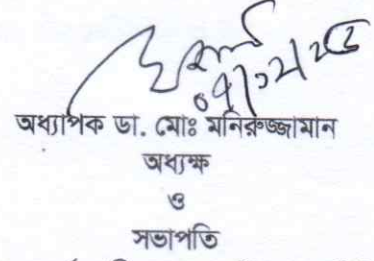 অধ্যাপক ডা. মোঃ মনিরুজ্জামান
অধ্যক্ষ
ও
সভাপতি